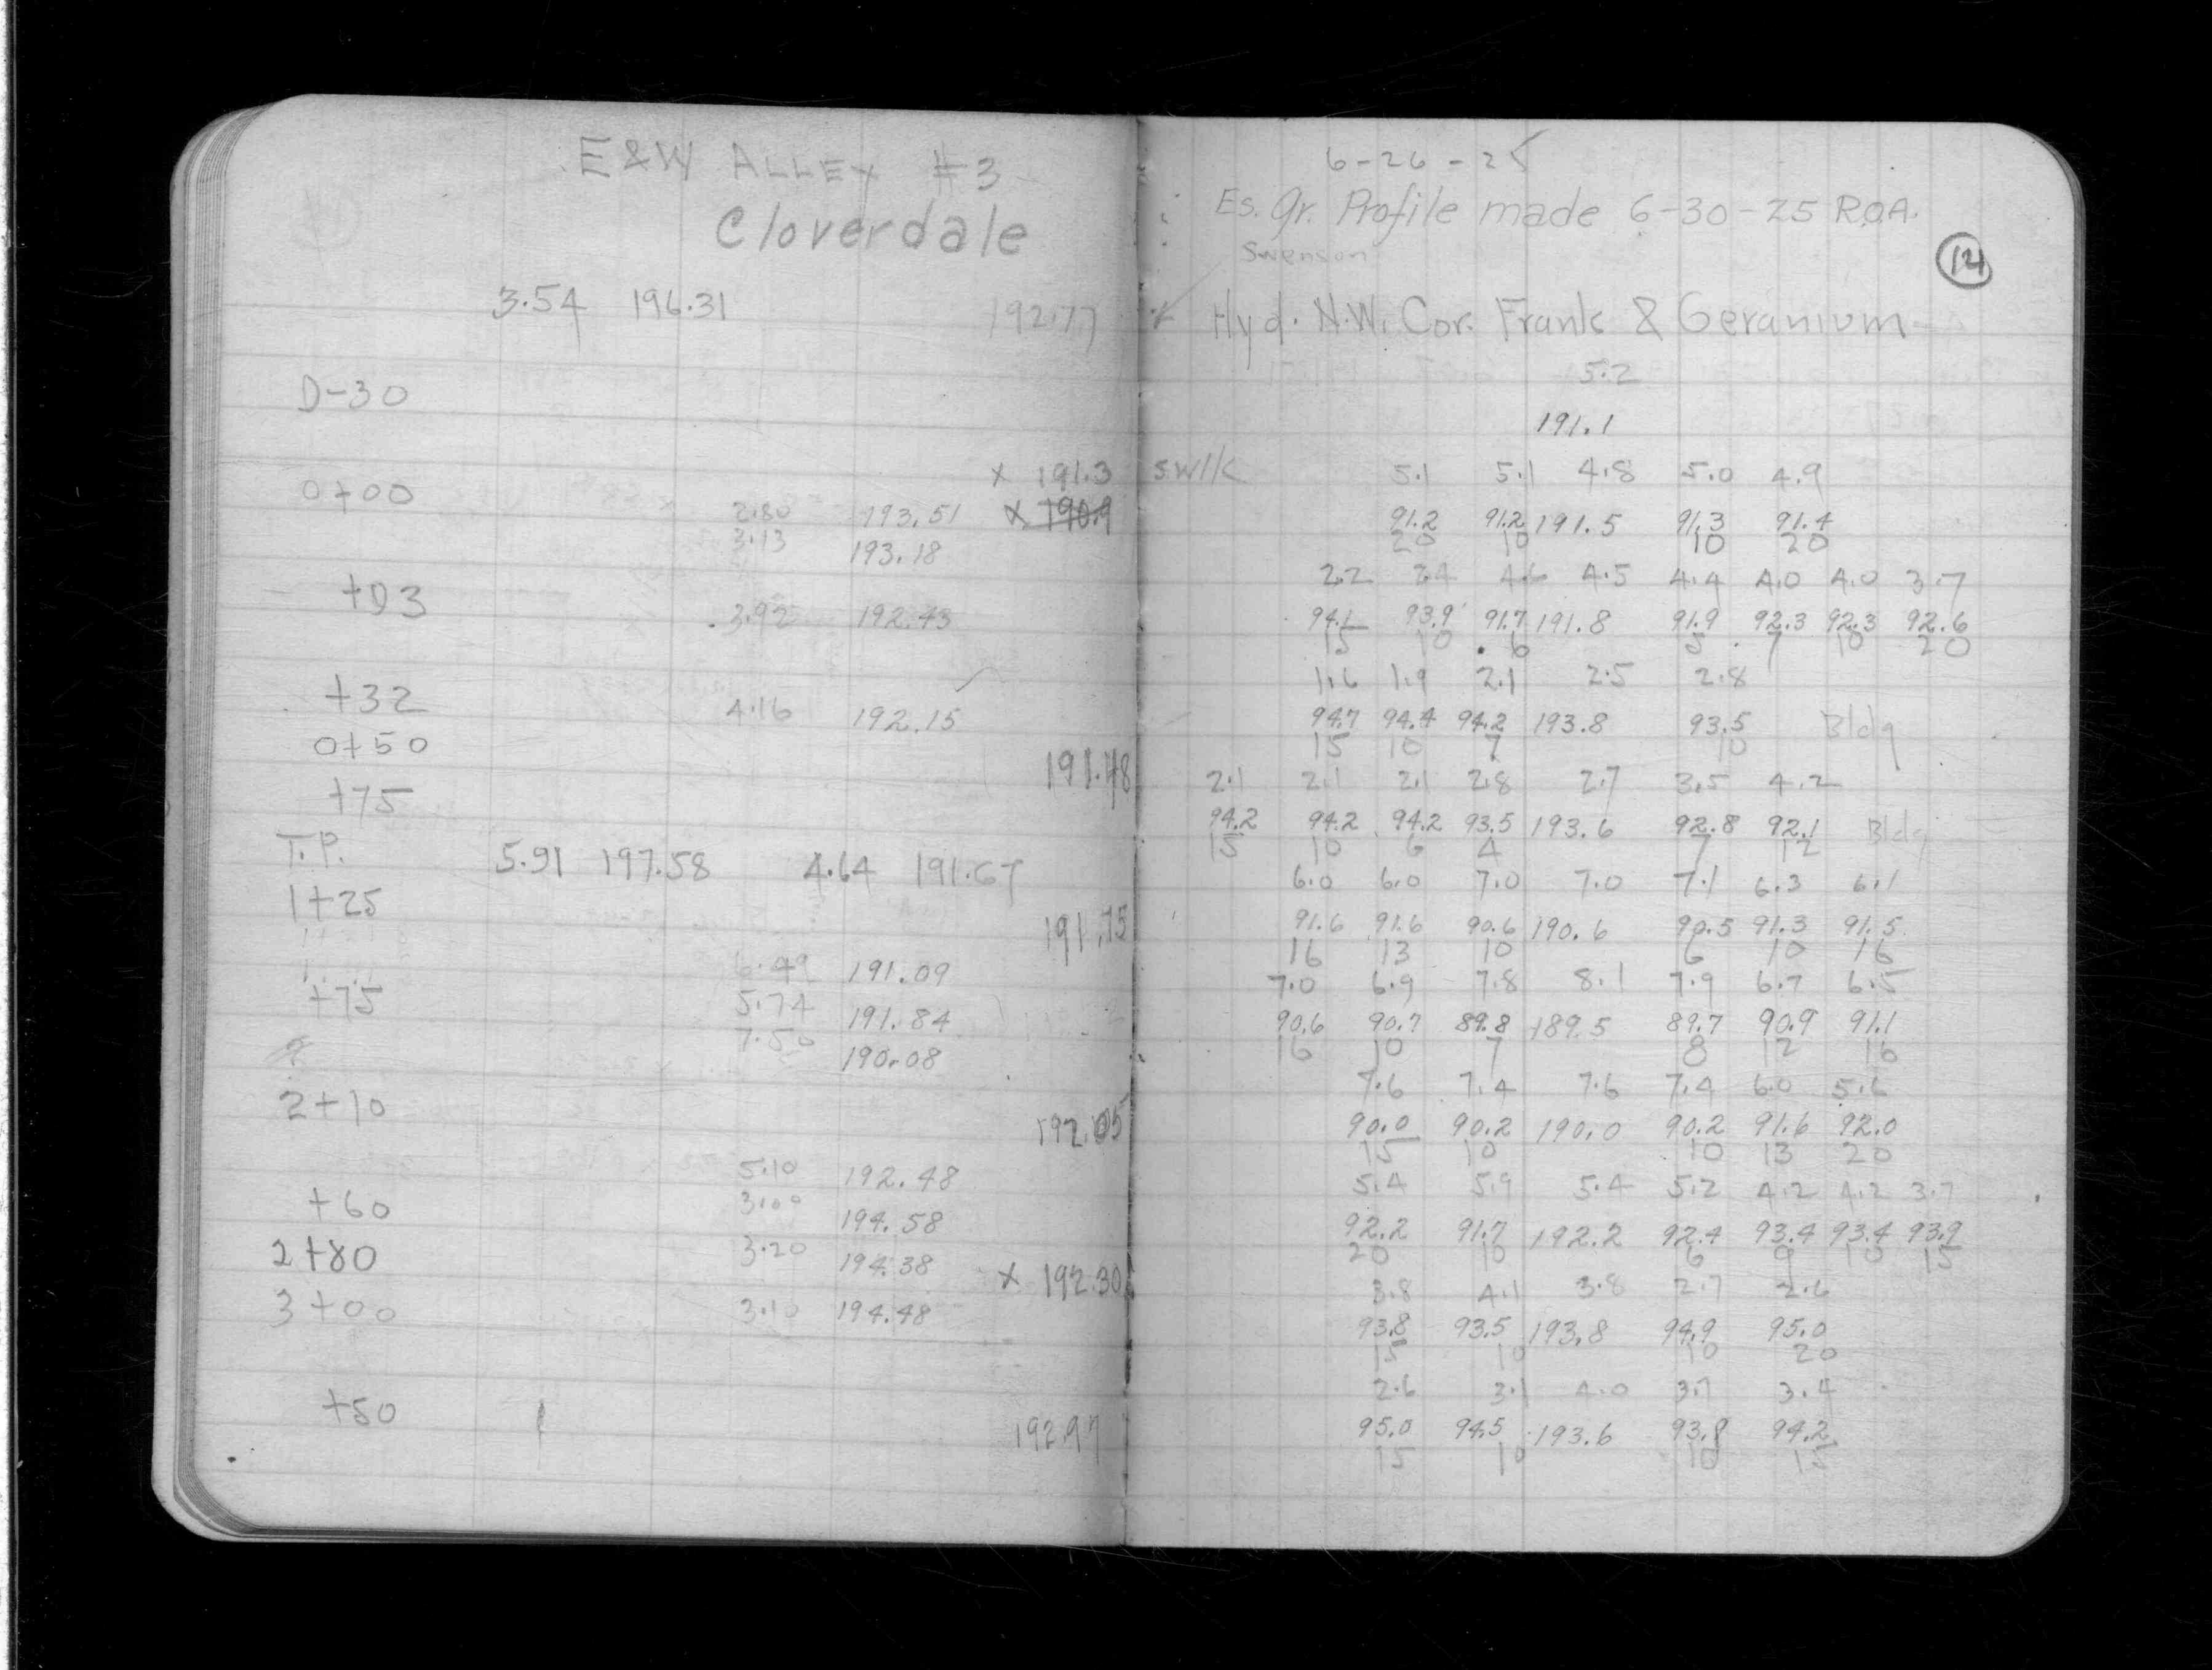 E&W ALLEY #3
Cloverdale
3.54 196.31 192.77
D-30
x 191.3
0+00 2.80 193.51 x 190.9
3.13 193.18
+03 3.92 192.43
+32 4.16 192.15
0+50 191.48
+75
T.P. 5.91 197.58 4.64 191.67
1+25 191.15
6.49 191.09
+75 5.74 191.84
7.50 190.08
2+10 192.05
5.10 192.48
+60 3.00 194.58
2+80 3.20 194.38 x 192.30
3+00 3.10 194.48
+50 192.97
6-26-25
Es. Gr. Profile made 6-30-25 R.O.A.
Swenson
14
Hyd. N.W. Cor. Frank & Geranium
5.2
191.1
SWlk 5.1 5.1 4.8 5.0 4.9
91.2 91.2 191.5 91.3 91.4
20 10 10 20
2.2 2.4 4.6 4.5 4.4 4.0 4.0 3.7
94.1 93.9 91.7 191.8 91.9 92.3 92.3 92.6
15 10 6 5 7 10 20
1.6 1.9 2.1 2.5 2.8
94.7 94.4 94.2 193.8 93.5 Bldg
15 10 7 10
2.1 2.1 2.1 2.8 2.7 3.5 4.2
94.2 94.2 94.2 93.5 193.6 92.8 92.1 Bldg
15 10 6 4 7 12
6.0 6.0 7.0 7.0 7.1 6.3 6.1
91.6 91.6 90.6 190.6 90.5 91.3 91.5
16 13 10 6 10 16
7.0 6.9 7.8 8.1 7.9 6.7 6.5
90.6 90.7 89.8 189.5 89.7 90.9 91.1
16 10 7 8 12 16
7.6 7.4 7.6 7.4 6.0 5.6
90.0 90.2 190.0 90.2 91.6 92.0
15 10 10 13 20
5.4 5.9 5.4 5.2 4.2 4.2 3.7
92.2 91.7 192.2 92.4 93.4 93.4 93.9
20 10 6 9 10 15
3.8 4.1 3.8 2.7 2.6
93.8 93.5 193.8 94.9 95.0
15 10 10 20
2.6 3.1 4.0 3.7 3.4
95.0 94.5 193.6 93.9 94.2
15 10 10 15